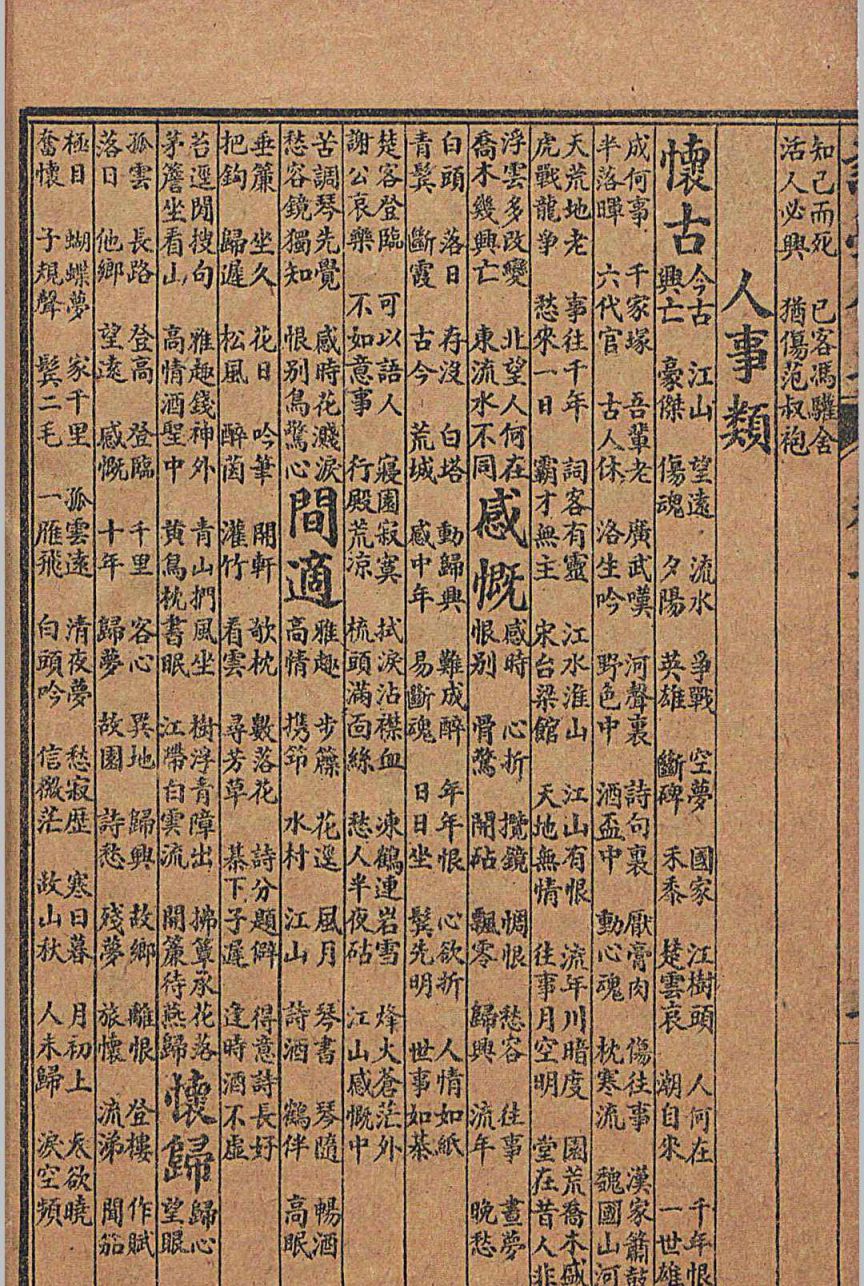 知己而死　已客馮驩舍
活人必興　猶傷范叔袍
人事類
懷古
今古　江山　望遠　流水　爭戰　空夢　國家　江樹頭　人何在　千年恨
興亡　豪傑　傷魂　夕陽　英雄　斷碑　禾黍　楚雲哀　潮自來　一世雄
成何事　千家塚　吾輩老　廣武嘆　河聲裏　詩句裏　厭膏肉　傷往事　漢家簫鼓
半落暉　六代官　古人休　洛生吟　野色中　酒盃中　動心魂　枕寒流　魏國山河
天荒地老　事往千年　詞客有靈　江水淮山　江山有恨　流年川暗度　園荒喬木盛
虎戰龍爭　愁來一日　霸才無主　宋台梁館　天地無情　往事月空明　堂在昔人非
浮雲多改變　北望人何在
喬木幾興亡　東流水不同
感慨
感時　心折　攬鏡　惆恨　愁容　往事　晝夢
恨別　骨驚　聞砧　飄零　歸興　流年　晚愁
白頭　落日　存沒　白塔　動歸興　難成醉　年年恨　心欲折　人情如紙
青鬂　斷霞　古今　荒城　感中年　易斷魂　日日坐　鬂先明　世事如棊
楚客登臨　可以語人　寢園寂寞　拭淚沾襟血　凍鶴連岩雪　烽火蒼茫外
謝公哀樂　不如意事　行殿荒凉　梳頭滿面絲　愁人半夜砧　江山感慨中
苦調琴先覺　感時花濺淚
愁容鏡獨知　恨別鳥驚心
間適
雅趣　步簷　花逕　風月　琴書　琴隨　暢酒
高情　携笻　水村　江山　詩酒　鶴伴　高眠
垂簾　坐久　花日　吟筆　開軒　欹枕　數落花　詩分題僻　得意詩長好
把鈎　歸遲　松風　醉茵　灌竹　看雲　尋芳草　棊下子遲　逢時酒不虛
苔逕閒搜句　雅趣錢神外　青山捫風坐　樹浮青障出　拂簟承花落
茅簷坐看山　高情酒聖中　黄鳥枕書眠　江帶白雲流　開簾待燕歸
懷歸
歸心
望眼
孤雲　長路　登高　登臨　千里　客心　異地　歸興　故鄉　離恨　登樓　作賦
落日　他鄉　望遠　感慨　十年　歸夢　故園　詩愁　殘夢　旅懷　流涕　聞笳
極目　蝴蝶夢　家千里　孤雲遠　清夜夢　愁寂歷　寒日暮　月初上　天欲曉
奮懷　子規聲　鬂二毛　一雁飛　白頭吟　信微茫　故山秋　人未歸　淚空頻